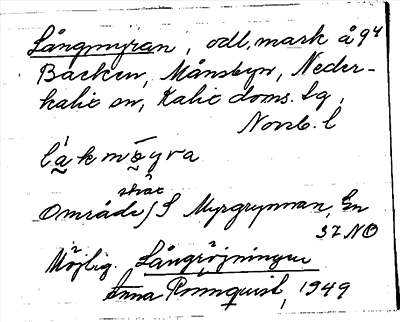 Långmyran, odl. mark å 9⁴
Backen, Månsbyn, Neder-
kalix sn, Kalix doms. lg,
Norrb. l
låkmöyra
strax
Område / S Myrgrynnan, En
37 NO
Möjlig. Långröjningen
Anna Rönnquist, 1949